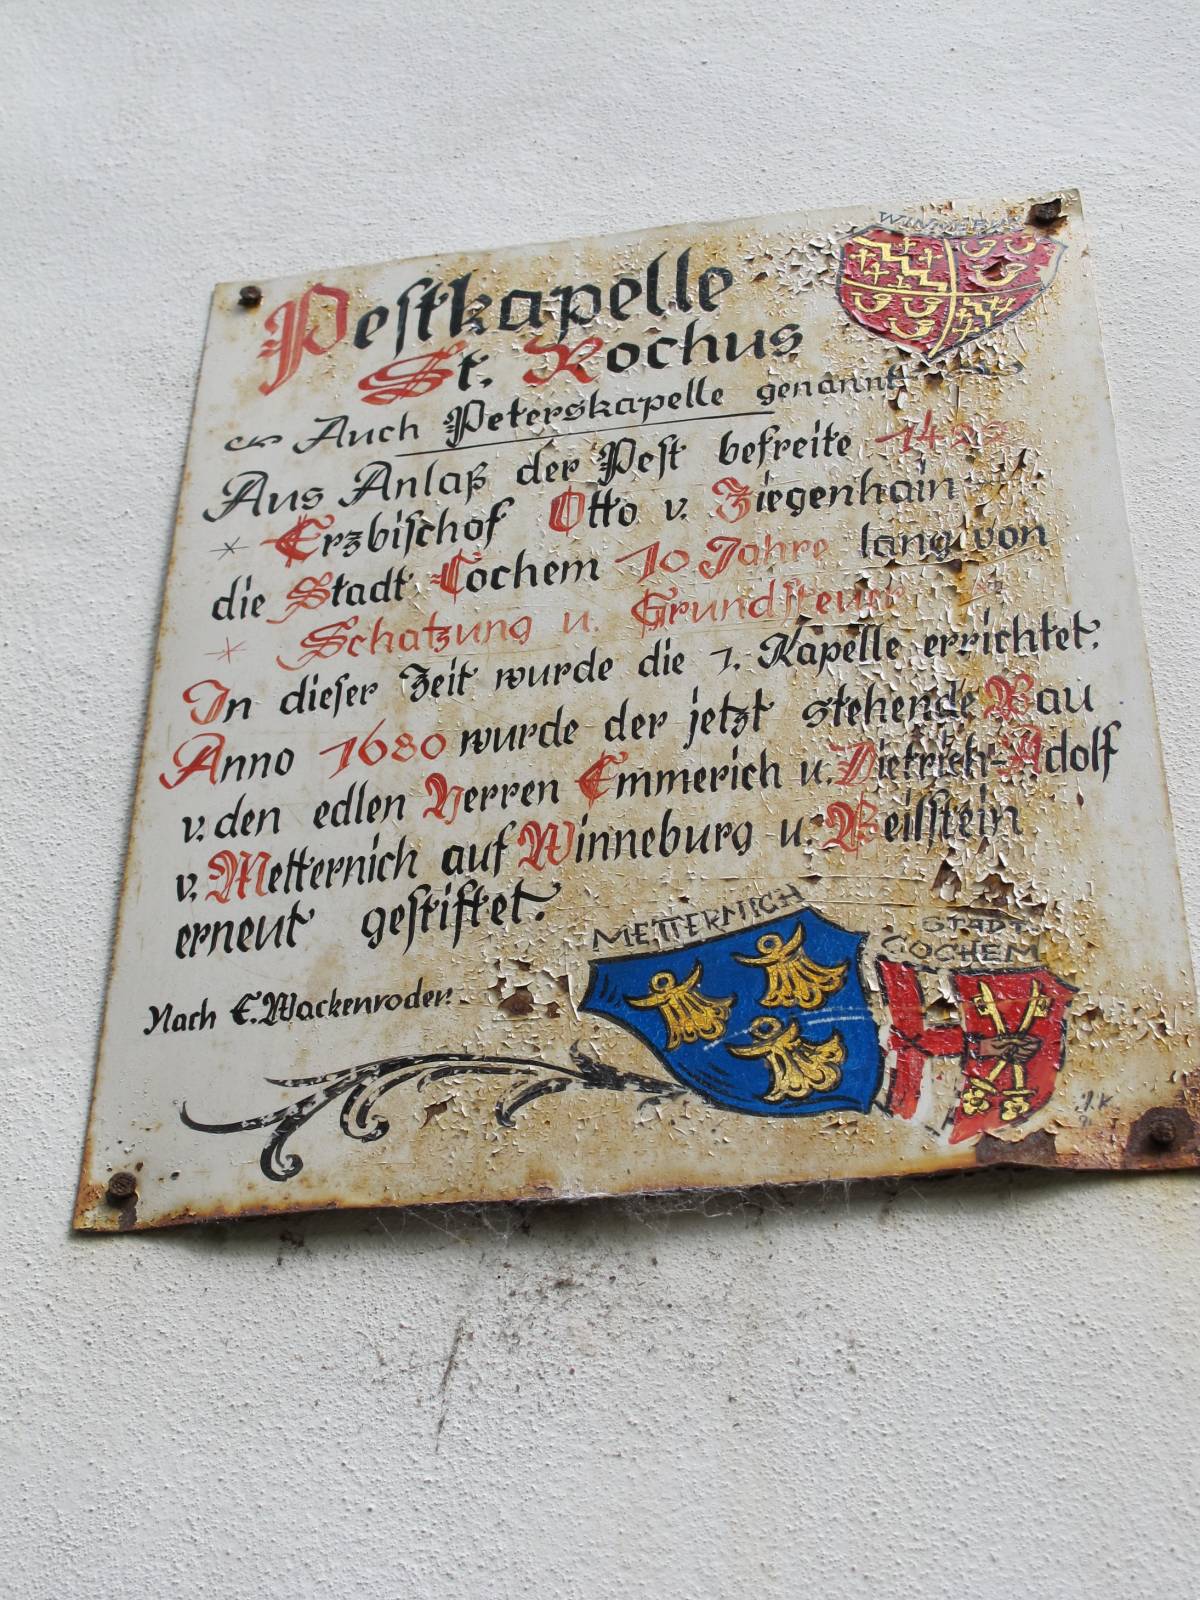 WINNEBURG
Pestkapelle
St. Rochus
Auch Peterskapelle genannt
Aus Anlaß der Pest befreite
Erzbischof Otto v. Ziegenhain
die Stadt Cochem 10 Jahre lang von
Schatzung u. Grundsteuer
In dieser Zeit wurde die 1. Kapelle errichtet.
Anno 1680 wurde der jetzt stehende Bau
v. den edlen Herren Emmerich u. Dietrich-Adolf
v. Metternich auf Winneburg u. Beilstein
erneut gestiftet.
METTERNICH
STADT
COCHEM
Nach E. Wackenroder.
J.K